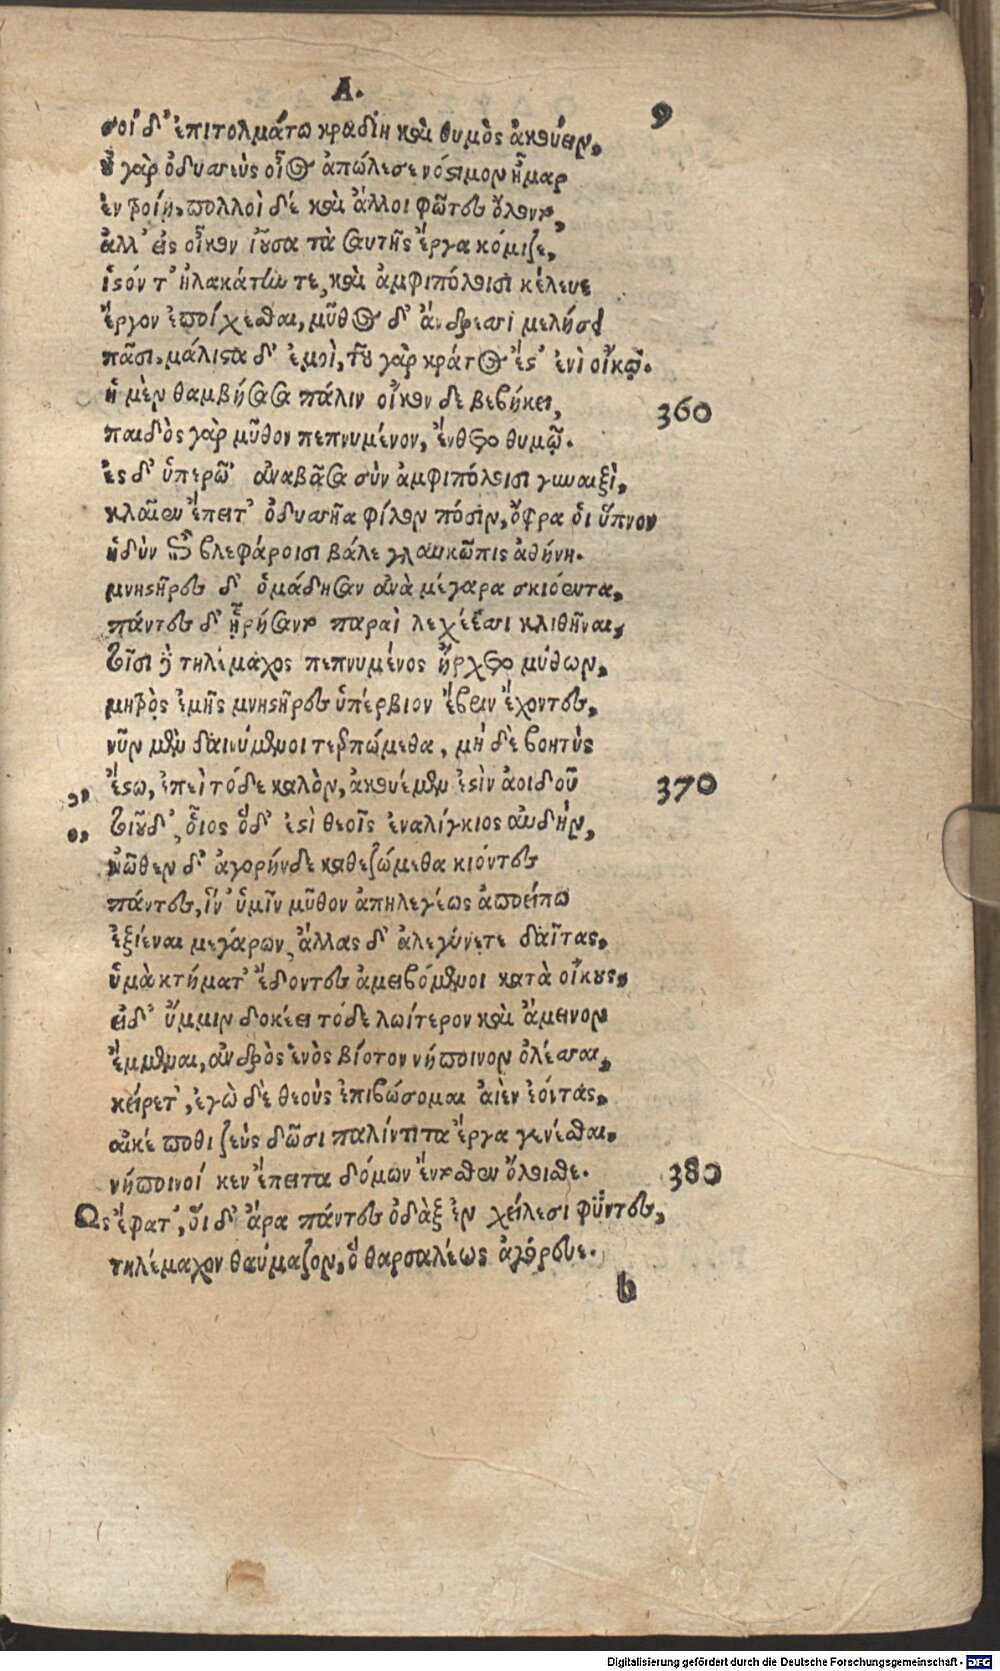 Α.
9
σοὶ δ' ἐπιτολμάτω κραδίη καὶ θυμὸς ἀκούειν,
οὐ γὰρ ὀδυσσεὺς οἶος ἀπώλεσε νόστιμον ἦμαρ
ἐν τροίῃ, πολλοὶ δὲ καὶ ἄλλοι φῶτες ὄλοντο,
ἀλλ' εἰς οἶκον ἰοῦσα τὰ σαυτῆς ἔργα κόμιζε,
ἱστόν τ' ἠλακάτην τε, καὶ ἀμφιπόλοισι κέλευε
ἔργον ἐποίχεσθαι, μῦθος δ' ἄνδρεσσι μελήσει
πᾶσι, μάλιστα δ' ἐμοὶ, τοῦ γὰρ κράτος ἔστ' ἐνὶ οἴκῳ.
ἡ μὲν θαμβήσασα πάλιν οἶκον δὲ βεβήκει, 360
παιδὸς γὰρ μῦθον πεπνυμένον, ἔνθετο θυμῷ.
ἐς δ' ὑπερῷ' ἀναβᾶσα σὺν ἀμφιπόλοισι γυναιξὶ,
κλαῖεν ἔπειτ' ὀδυσσῆα φίλον πόσιν, ὄφρα οἱ ὕπνον
ἡδὺν ἐπὶ βλεφάροισι βάλε γλαυκῶπις ἀθήνη.
μνηστῆρες δ' ὁμάδησαν ἀνὰ μέγαρα σκιόεντα,
πάντες δ' ἠρήσαντο παραὶ λεχέεσσι κλιθῆναι,
τοῖσι δὲ τηλέμαχος πεπνυμένος ἤρχετο μύθων,
μητρὸς ἐμῆς μνηστῆρες ὑπέρβιον ὕβριν ἔχοντες,
νῦν μὲν δαινύμενοι τερπώμεθα, μὴ δὲ βοητὺς
ἔστω, ἐπεὶ τόδε καλὸν, ἀκουέμεν ἐστὶν ἀοιδοῦ 370
τοιοῦδ', οἷος ὅδ' ἐστὶ θεοῖς ἐναλίγκιος αὐδὴν,
ἠῶθεν δ' ἀγορήνδε καθεζώμεθα κιόντες
πάντες, ἵν' ὑμῖν μῦθον ἀπηλεγέως ἀποείπω
ἐξιέναι μεγάρων, ἄλλας δ' ἀλεγύνετε δαῖτας,
ὑμὰ κτήματ' ἔδοντες ἀμειβόμενοι κατὰ οἴκους,
εἰ δ' ὔμμιν δοκέει τόδε λωίτερον καὶ ἄμεινον
ἔμμεναι, ἀνδρὸς ἑνὸς βίοτον νήποινον ὀλέσσαι,
κείρετ', ἐγὼ δὲ θεοὺς ἐπιβώσομαι αἰὲν ἐόντας,
αἴκέ ποθι ζεὺς δῶσι παλίντιτα ἔργα γενέσθαι,
νήποινοί κεν ἔπειτα δόμων ἔντοσθεν ὄλοισθε. 380
Ως ἔφατ', οἱ δ' ἄρα πάντες ὀδὰξ ἐν χείλεσι φῦντες,
τηλέμαχον θαύμαζον, ὃ θαρσαλέως ἀγόρευε.
b
Digitalisierung gefördert durch die Deutsche Forschungsgemeinschaft - DFG